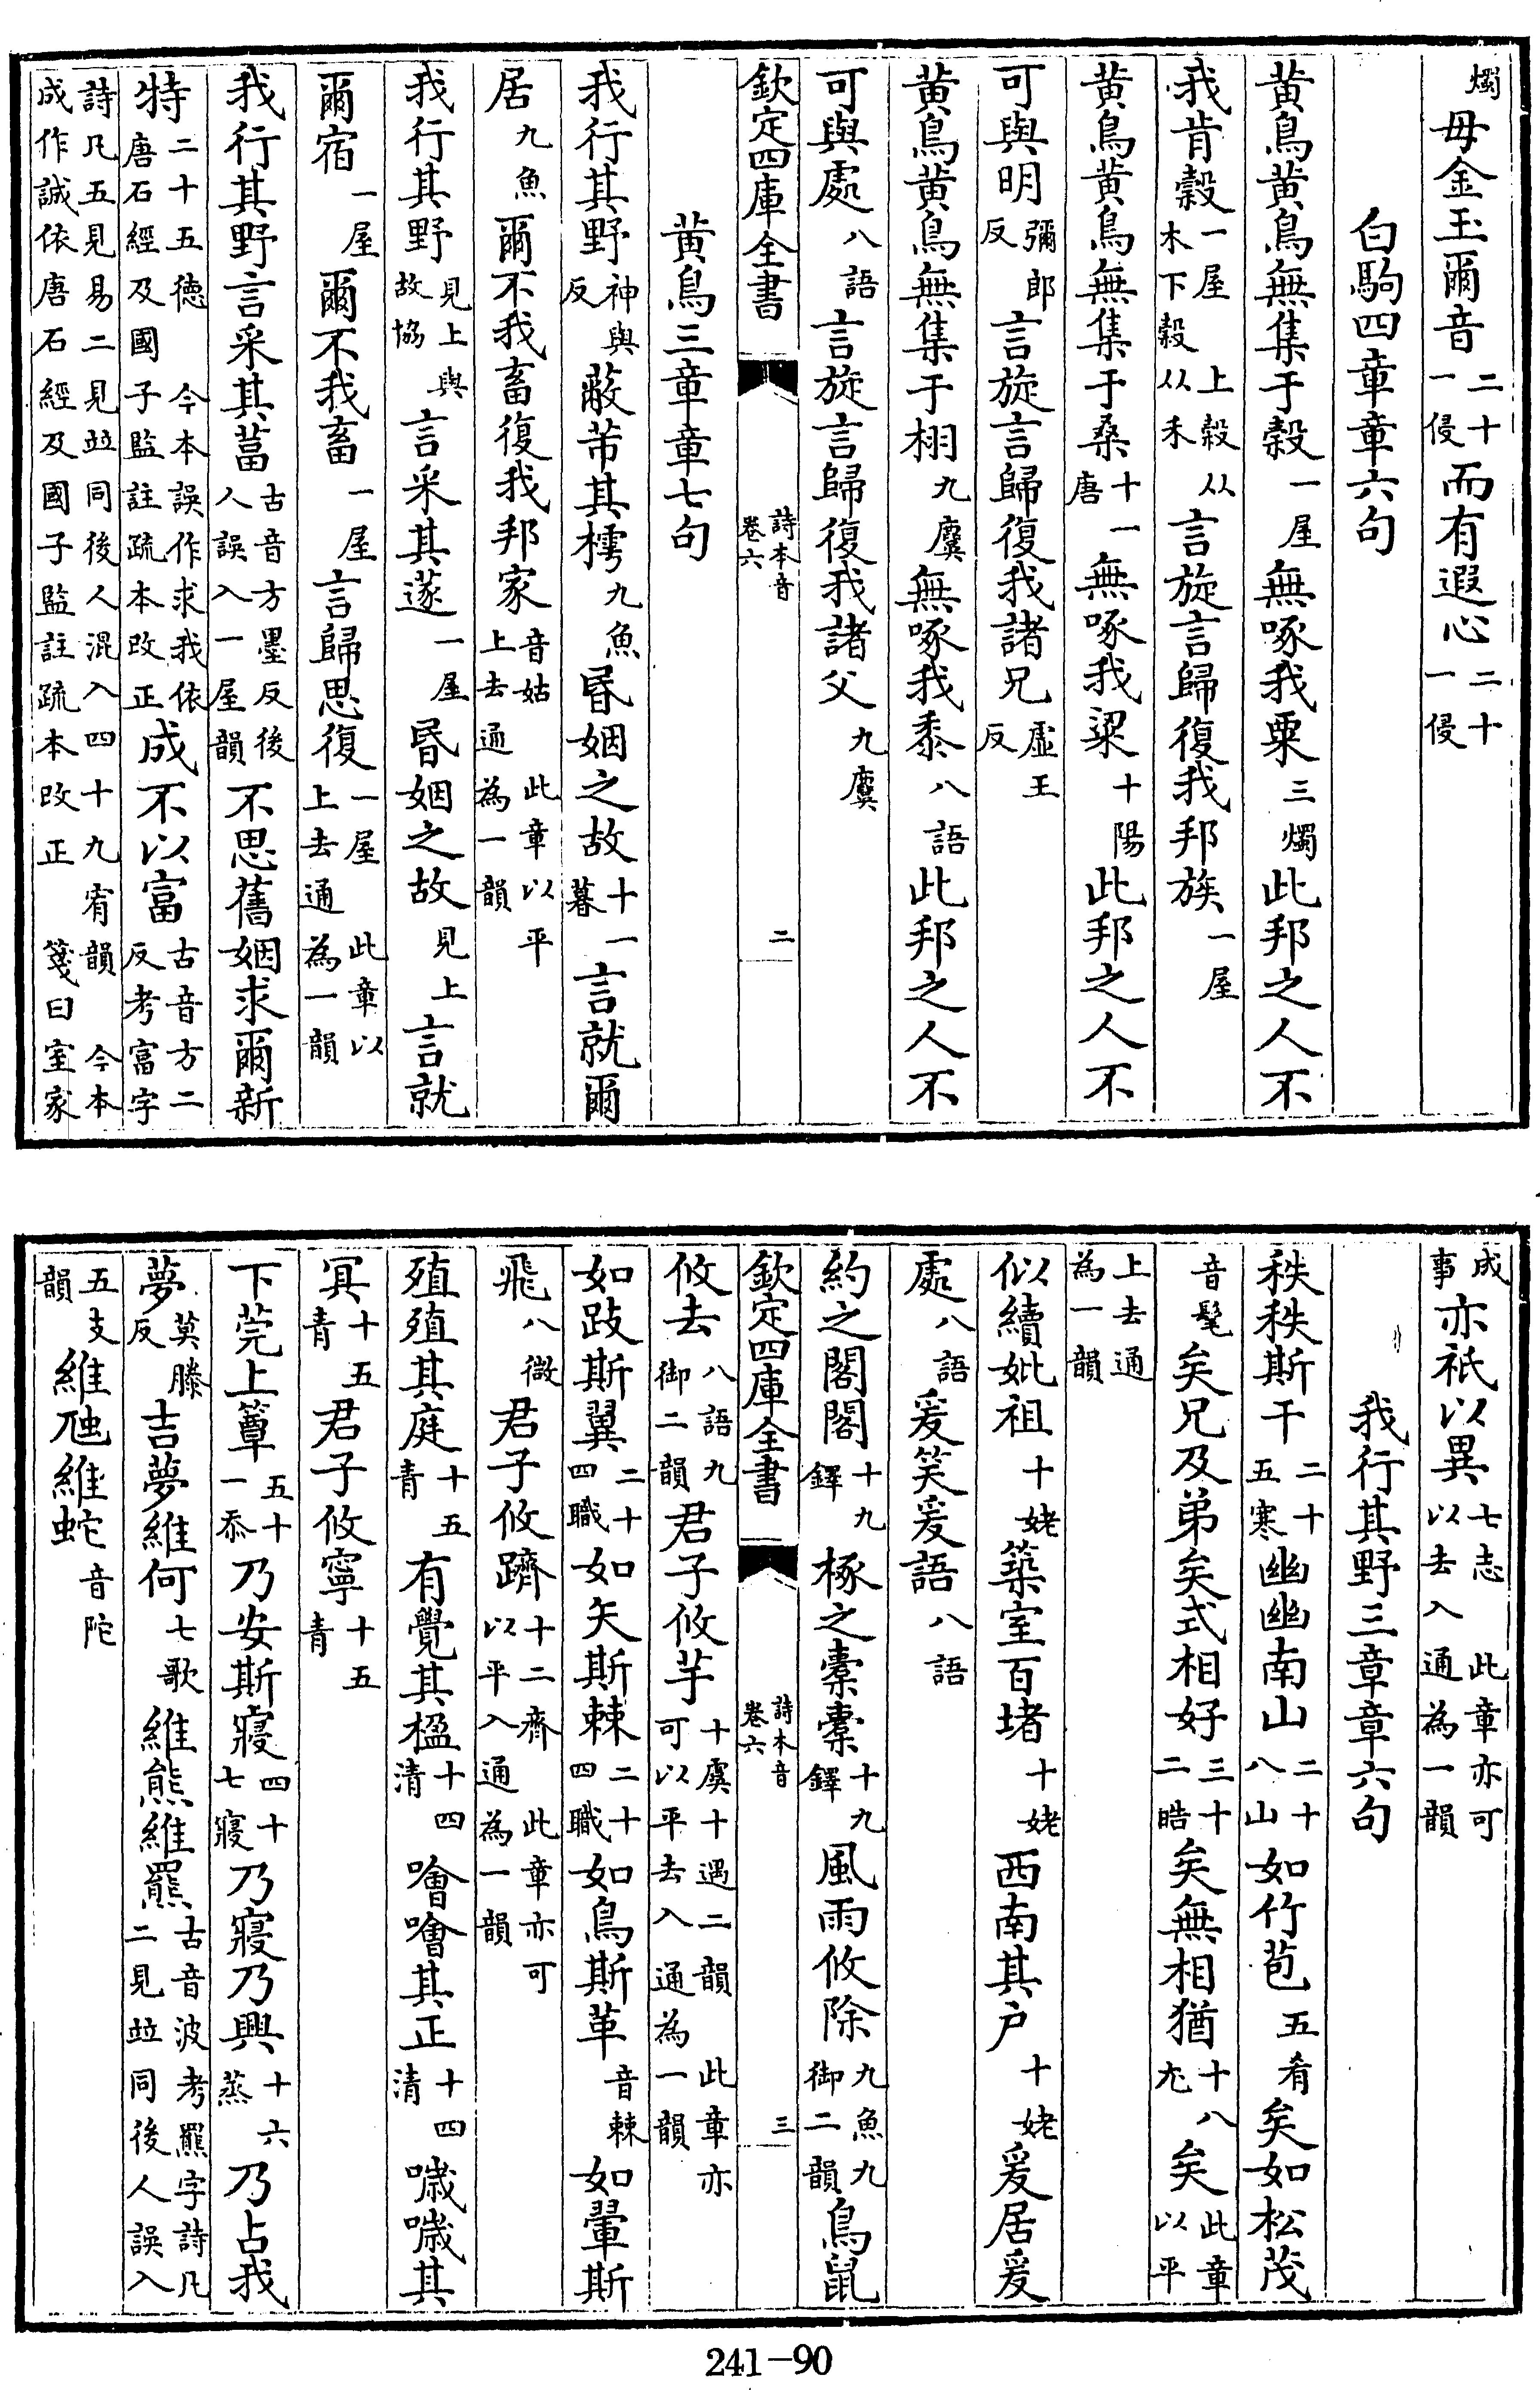 燭毋金玉爾音二十一侵而有遐心二十一侵
白駒四章章六句
黄鳥黄鳥無集于榖一屋無啄我粟三燭此邦之人不
我肯穀一屋上榖从木下穀从禾言旋言歸復我邦族一屋
黄鳥黄鳥無集于桑十一唐無啄我粱十陽此邦之人不
可與明彌郎反言旋言歸復我諸兄虛王反
黄鳥黄鳥無集于栩九麌無啄我黍八語此邦之人不
可與處八語言旋言歸復我諸父九麌
欽定四庫全書 詩本音卷六 二
黄鳥三章章七句
我行其野神與反蔽芾其樗九魚昬姻之故十一暮言就爾
居九魚爾不我畜復我邦家音姑 此章以平上去通為一韻
我行其野見上與故協言采其蓫一屋昬姻之故見上言就
爾宿一屋爾不我畜一屋言歸思復一屋 此章以上去通為一韻
我行其野言采其葍古音方墨反後人誤入一屋韻不思舊姻求爾新
特二十五德 今本誤作求我依唐石經及國子監註疏本改正成不以富古音方二反考富字
詩凡五見易二見竝同後人混入四十九宥韻 今本成作誠依唐石經及國子監註疏本改正 箋曰室家
成事亦祇以異七志 此章亦可以去入通為一韻
我行其野三章章六句
秩秩斯干二十五寒幽幽南山二十八山如竹苞五肴矣如松茂
音髦矣兄及弟矣式相好三十二皓矣無相猶十八尤矣此章以平
上去通為一韻
似續妣祖十姥築室百堵十姥西南其户十姥爰居爰
處八語爰笑爰語八語
約之閣閣十九鐸椓之橐橐十九鐸風雨攸除九魚九御二韻鳥鼠
欽定四庫全書 詩本音卷六 三
攸去八語九御二韻君子攸芋十虞十遇二韻 此章亦可以平去入通為一韻
如跂斯翼二十四職如矢斯棘二十四職如鳥斯革音棘如翬斯
飛八微君子攸躋十二齊 此章亦可以平入通為一韻
殖殖其庭十五青有覺其楹十四清噲噲其正十四清噦噦其
冥十五青君子攸寧十五青
下莞上簟五十一忝乃安斯寢四十七寢乃寢乃興十六蒸乃占我
夢莫滕反吉夢維何七歌維熊維羆古音波考羆字詩凡二見竝同後人誤入
五支韻維虺維蛇音陀
241-90